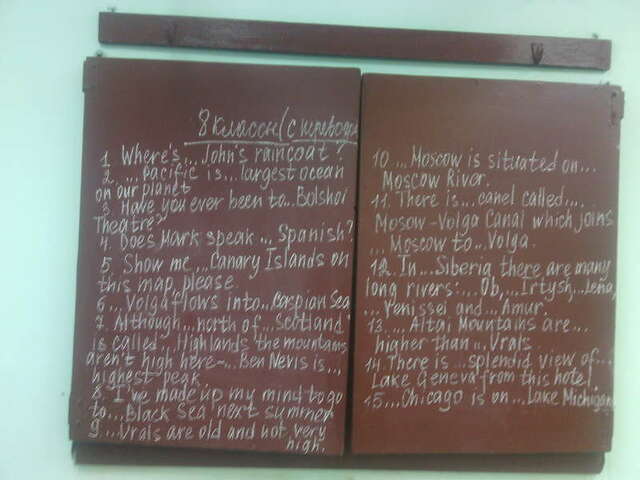 8 классы (с переводом
1. Where's ... John's raincoat?
2. ... Pacific is ... largest ocean
on our planet
3. Have you ever been to ... Bolshoi
Theatre?
4. Does Mark speak ... Spanish?
5. Show me ... Canary Islands on
this map, please.
6. ... Volga flows into ... Caspian Sea
7. Although ... north of ... Scotland
is called ... Highlands the mountains
aren't high here - ... Ben Nevis is ...
highest peak.
8. I've made up my mind to go
to ... Black Sea next summer
9. ... Urals are old and not very
high.
10. ... Moscow is situated on ...
Moscow River.
11. There is ... canel called ...
Moscow-Volga Canal which joins
... Moscow to ... Volga.
12. In ... Siberia there are many
long rivers: ... Ob, ... Irtysh, ... Lena,
... Yenissei and ... Amur.
13. ... Altai Mountains are ...
higher than ... Urals
14. There is ... splendid view of ...
Lake Geneva from this hotel.
15. ... Chicago is on ... Lake Michigan